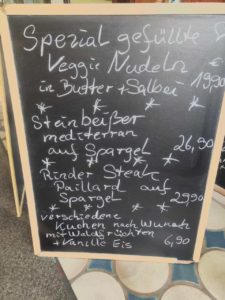 Spezial gefüllte
Veggie Nudeln
in Butter + Salbei 19,90
* * * *
Steinbeißer
mediterran
auf Spargel 26,90
* * * *
Rinder Steak
Paillard auf
Spargel 29,90
* * *
verschiedene
Kuchen nach Wunsch
mit Waldfrüchten
+ Vanille Eis 6,90